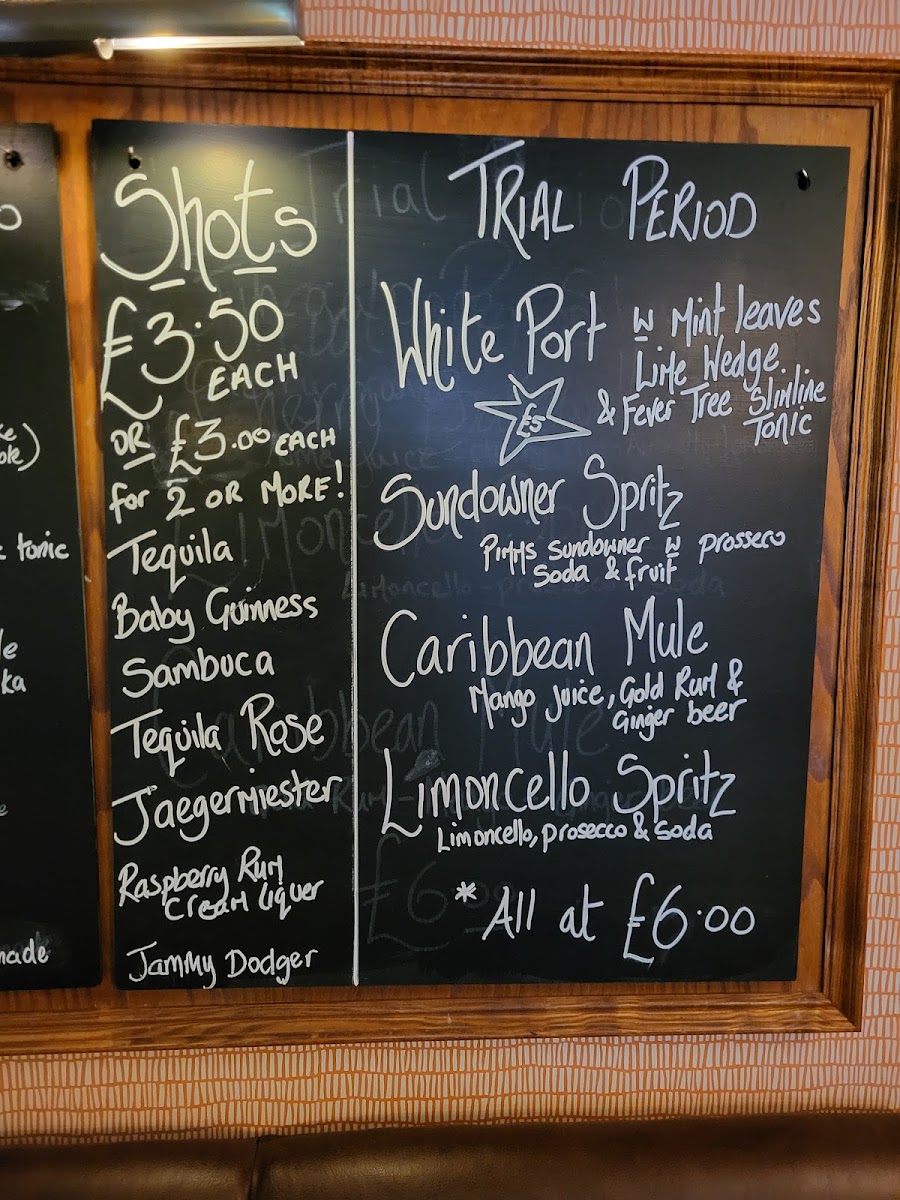 Shots
£3.50
EACH
OR £3.00 EACH
for 2 OR MORE!
Tequila
Baby Guinness
Sambuca
Tequila Rose
Jaegermiester
Raspberry Rum
Cream liquer
Jammy Dodger
TRIAL PERIOD
White Port w Mint leaves
Lime Wedge.
& Fever Tree Slimline
Tonic
£5
Sundowner Spritz
Pimms Sundowner w prossero
Soda & fruit
Caribbean Mule
Mango juice, Gold Rum &
Ginger beer
Limoncello Spritz
Limoncello, prosecco & soda
* All at £6.00
tonic